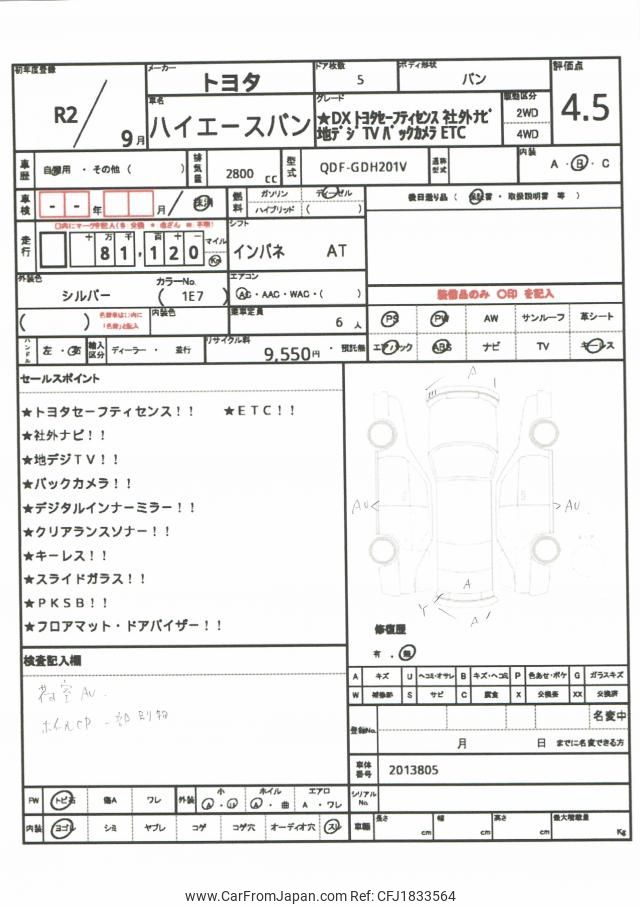 初年度登録
R2 / 9月
メーカー
トヨタ
ドア枚数
5
ボディ形状
バン
評価点
4.5
車名
ハイエースバン
グレード
★DX トヨタセーフティセンス 社外ナビ
地デジTV バックカメラ ETC
駆動区分
2WD
4WD
車歴
自家用 ・ その他 ( )
排気量
2800 cc
型式
QDF-GDH201V
通称型式
内装
A ・ B ・ C
車検
- - 年 月 /
燃料
ガソリン ディーゼル
ハイブリッド ( )
後日送り品 ( 保証書 ・ 取扱説明書 等 )
走行
十 万 千 百 十 一
81,120
マイル
Km
シフト
インパネ AT
外装色
シルバー
カラーNo.
( 1E7 )
エアコン
AC ・ AAC ・ WAC ・ ( )
装備品のみ ○印 を記入
( )
内装色
乗車定員
6 人
PS PW AW サンルーフ 革シート
エアバック ABS ナビ TV キーレス
ハンドル
左 ・ 右
輸入区分
ディーラー ・ 並行
リサイクル料
9,550円 ・ 預託無
セールスポイント
★トヨタセーフティセンス!! ★ETC!!
★社外ナビ!!
★地デジTV!!
★バックカメラ!!
★デジタルインナーミラー!!
★クリアランスソナー!!
★キーレス!!
★スライドガラス!!
★PKSB!!
★フロアマット・ドアバイザー!!
A
AU
AU
A
Y
A
修復歴
有 ・ 無
検査記入欄
荷室 AU.
A キズ U ヘコミ・オサレ B キズ・ヘコミ P 色あせ・ボケ G ガラスキズ
W 補修跡 S サビ C 腐食 X 交換要 XX 交換済
登録No.
名変中
月 日 までに名変できる方
車体番号
2013805
シリアルNo.
FW トビ石 傷A ワレ
外装 小 A ・ U ホイル A ・ 曲 エアロ A ・ ワレ
内装 ヨゴレ シミ ヤブレ コゲ コゲ穴 オーディオ穴 スレ
車輌 長さ cm 幅 cm 高さ cm 最大積載量 Kg
www.CarFromJapan.com Ref:CFJ1833564